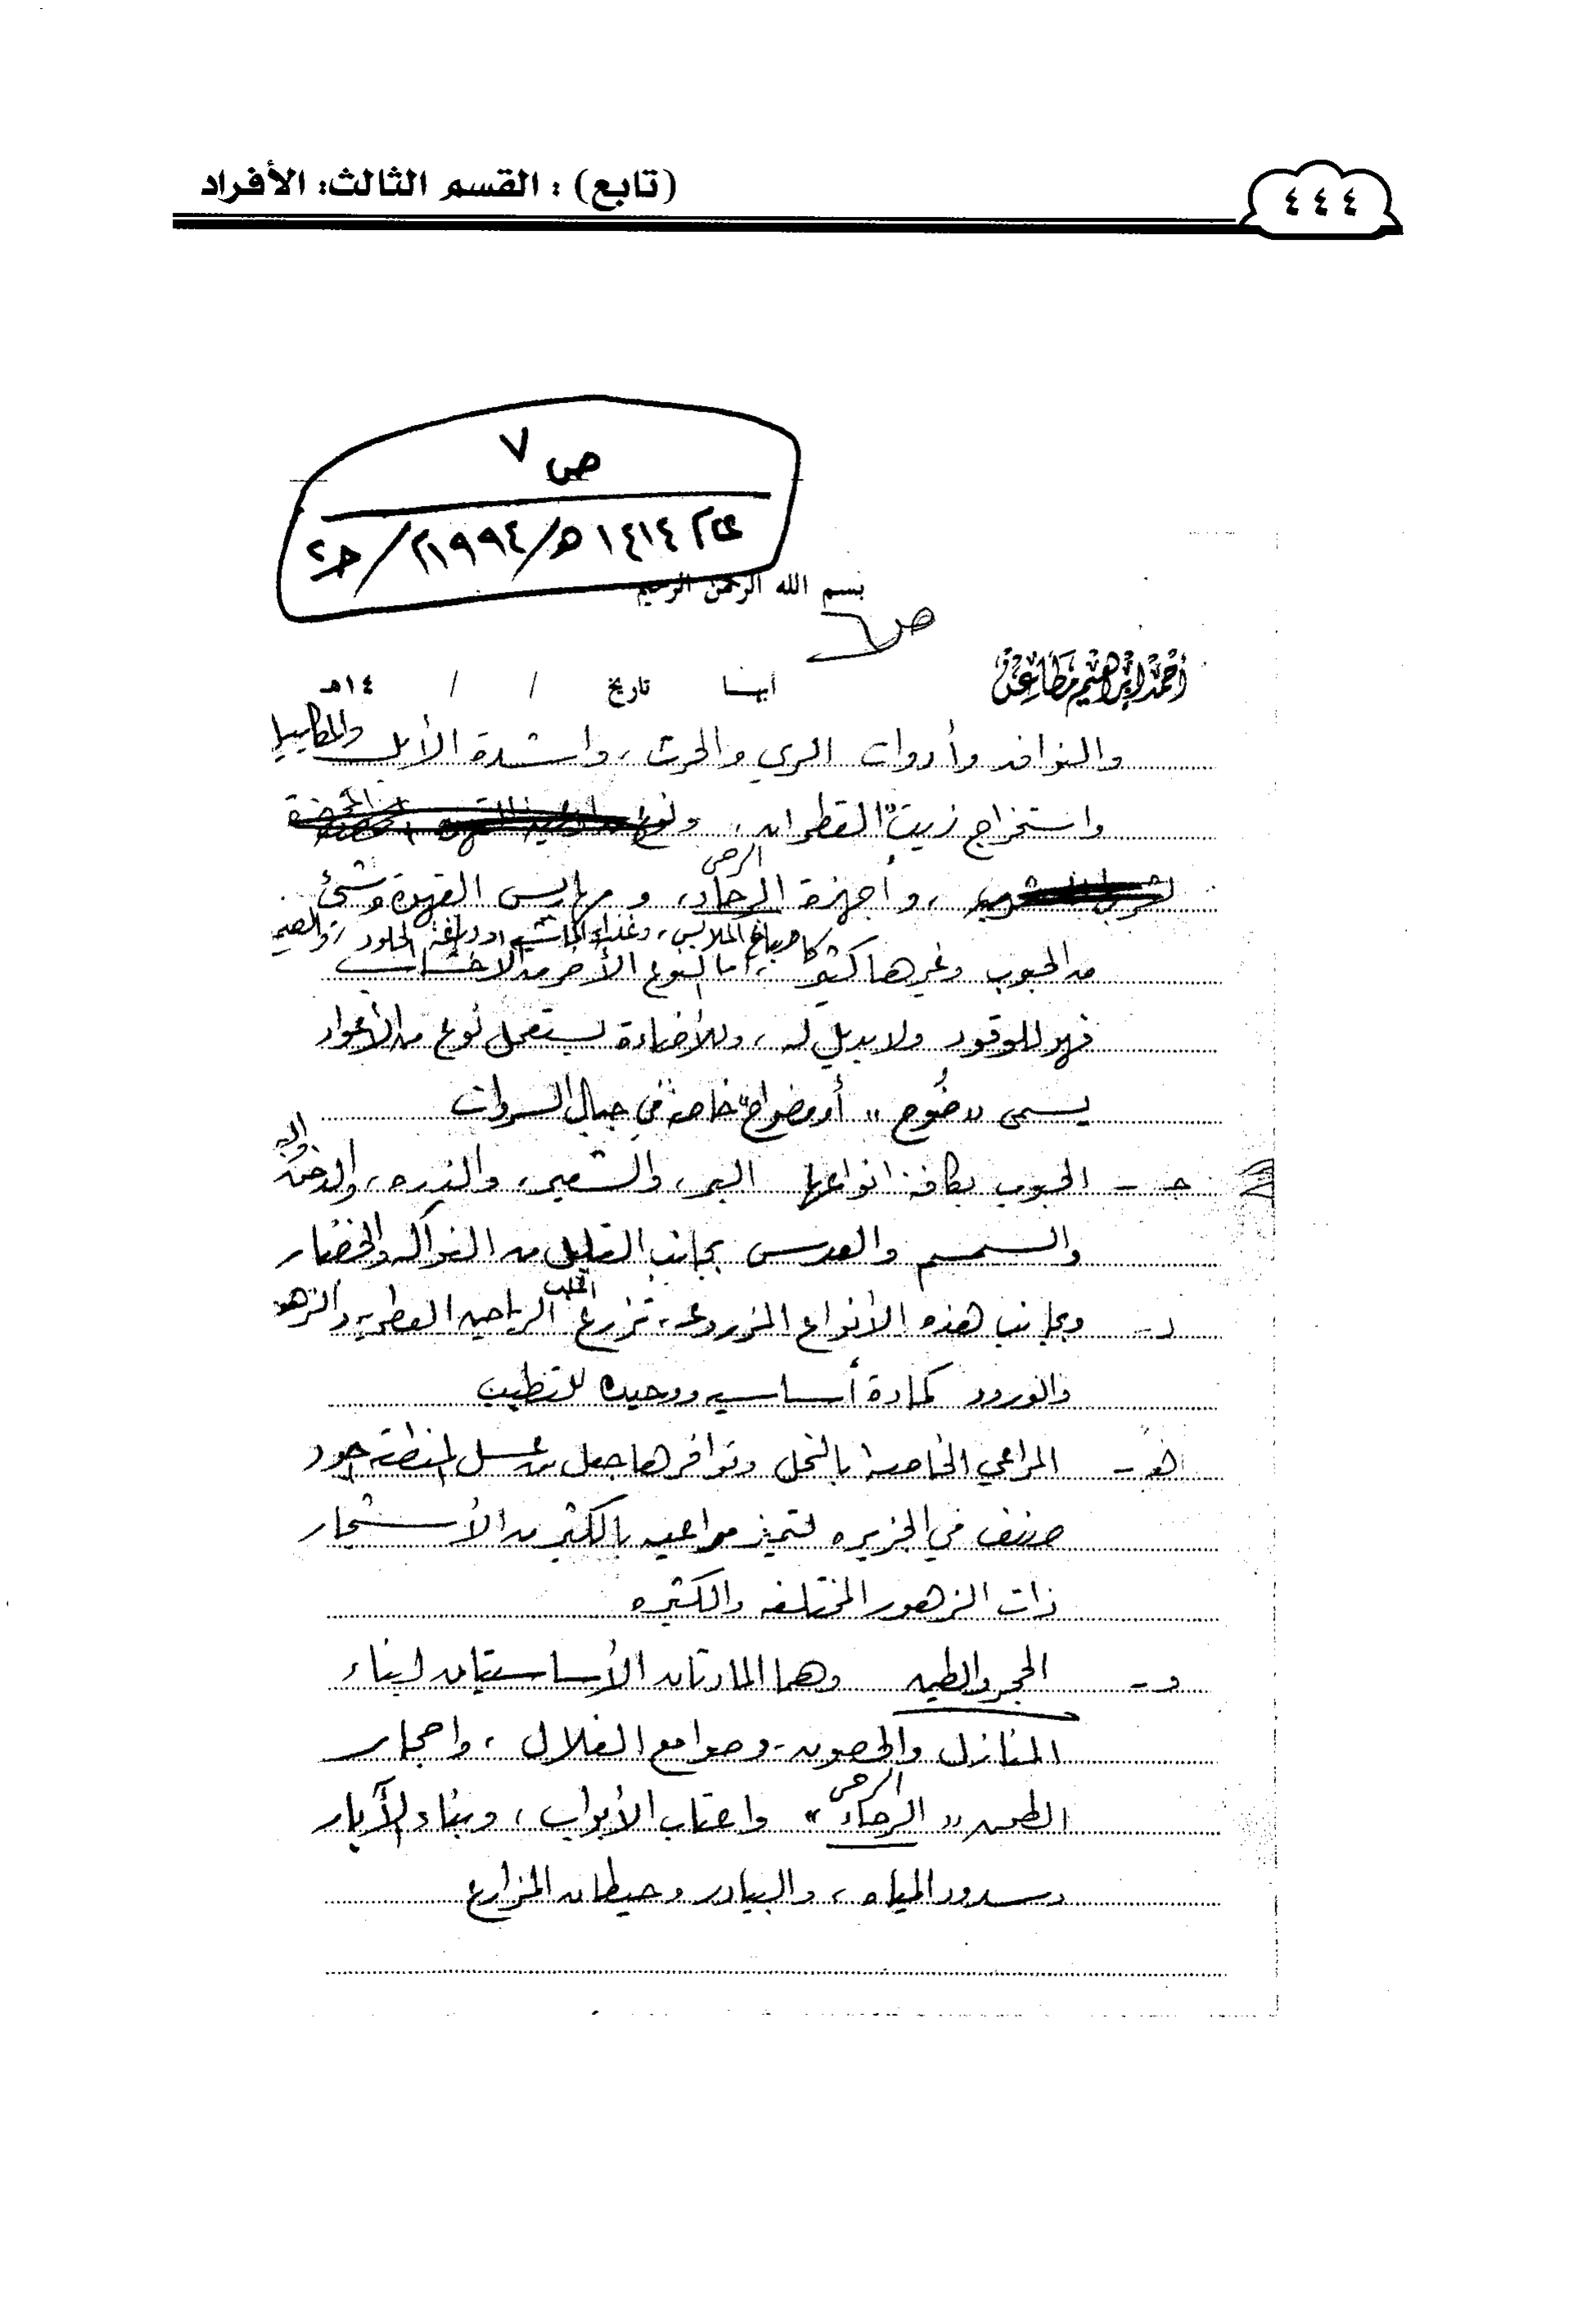 ٤٤٤
(تابع) : القسم الثالث: الأفراد
ص ٧
١٤١٤هـ/١٩٩٤م/ج٢
بسم الله الرحمن الرحيم
أحمد إبراهيم مطاعن
أبها تاريخ / / ١٤هـ
والنوافذ وأدوات الري والحرث، واشدة الأبل والمكاييل
واستخراج زيت "القطران،
وأجهزة الرحاء، ومهاريس القهوة وشئ
الرحى
كاصباغ الملابس، وغذاء الماشيه ودباغة الجلود،
من الحبوب وغيرها كثير، أما النوع الأخر من الاخشاب
فهو للوقود ولا بديل له، وللأضاءة يستعمل نوع من الأعواد
يسمى "ضوح" أو مضواح" خاصة في جبال السروات
جـ - الحبوب بكافة انواعها البر، والشعير، والذره، والدخن
والسمسم والعدس بجانب القليل من الفواكه والخضار
د - وبجانب هذه الأنواع المزروعه، تزرع الرياحين العطريه والزهور
والورود كمادة أساسيه ووحيده للتطيب
هـ - المراعي الخاصة بالنحل وتوافرها جعل من عسل المنطقة اجود
صنف في الجزيره لتميز مراعيه بالكثير من الأشجار
ذات الزهور المختلفه والكثيره
و - الحجر والطين وهما المادتان الأساسيتان لبناء
المنازل والحصون، وصوامع الغلال، واحجار
الرحى
الطحن "الرحاء" واعتاب الأبواب، وبناء الآبار
وسدود المياه، والبيادر وحيطان المزارع